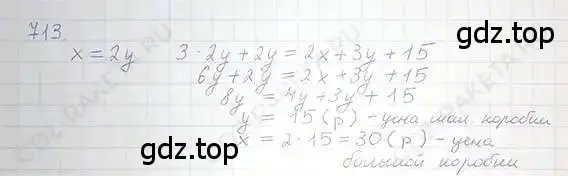 713
gdz.top
x = 2y 3·2y + 2y = 2x + 3y + 15
6y + 2y = 2x + 3y + 15
8y = 4y + 3y + 15
gdz.top
y = 15 (р) - цена мал. коробки
gdz.top
x = 2·15 = 30 (р) - цена
большой коробки